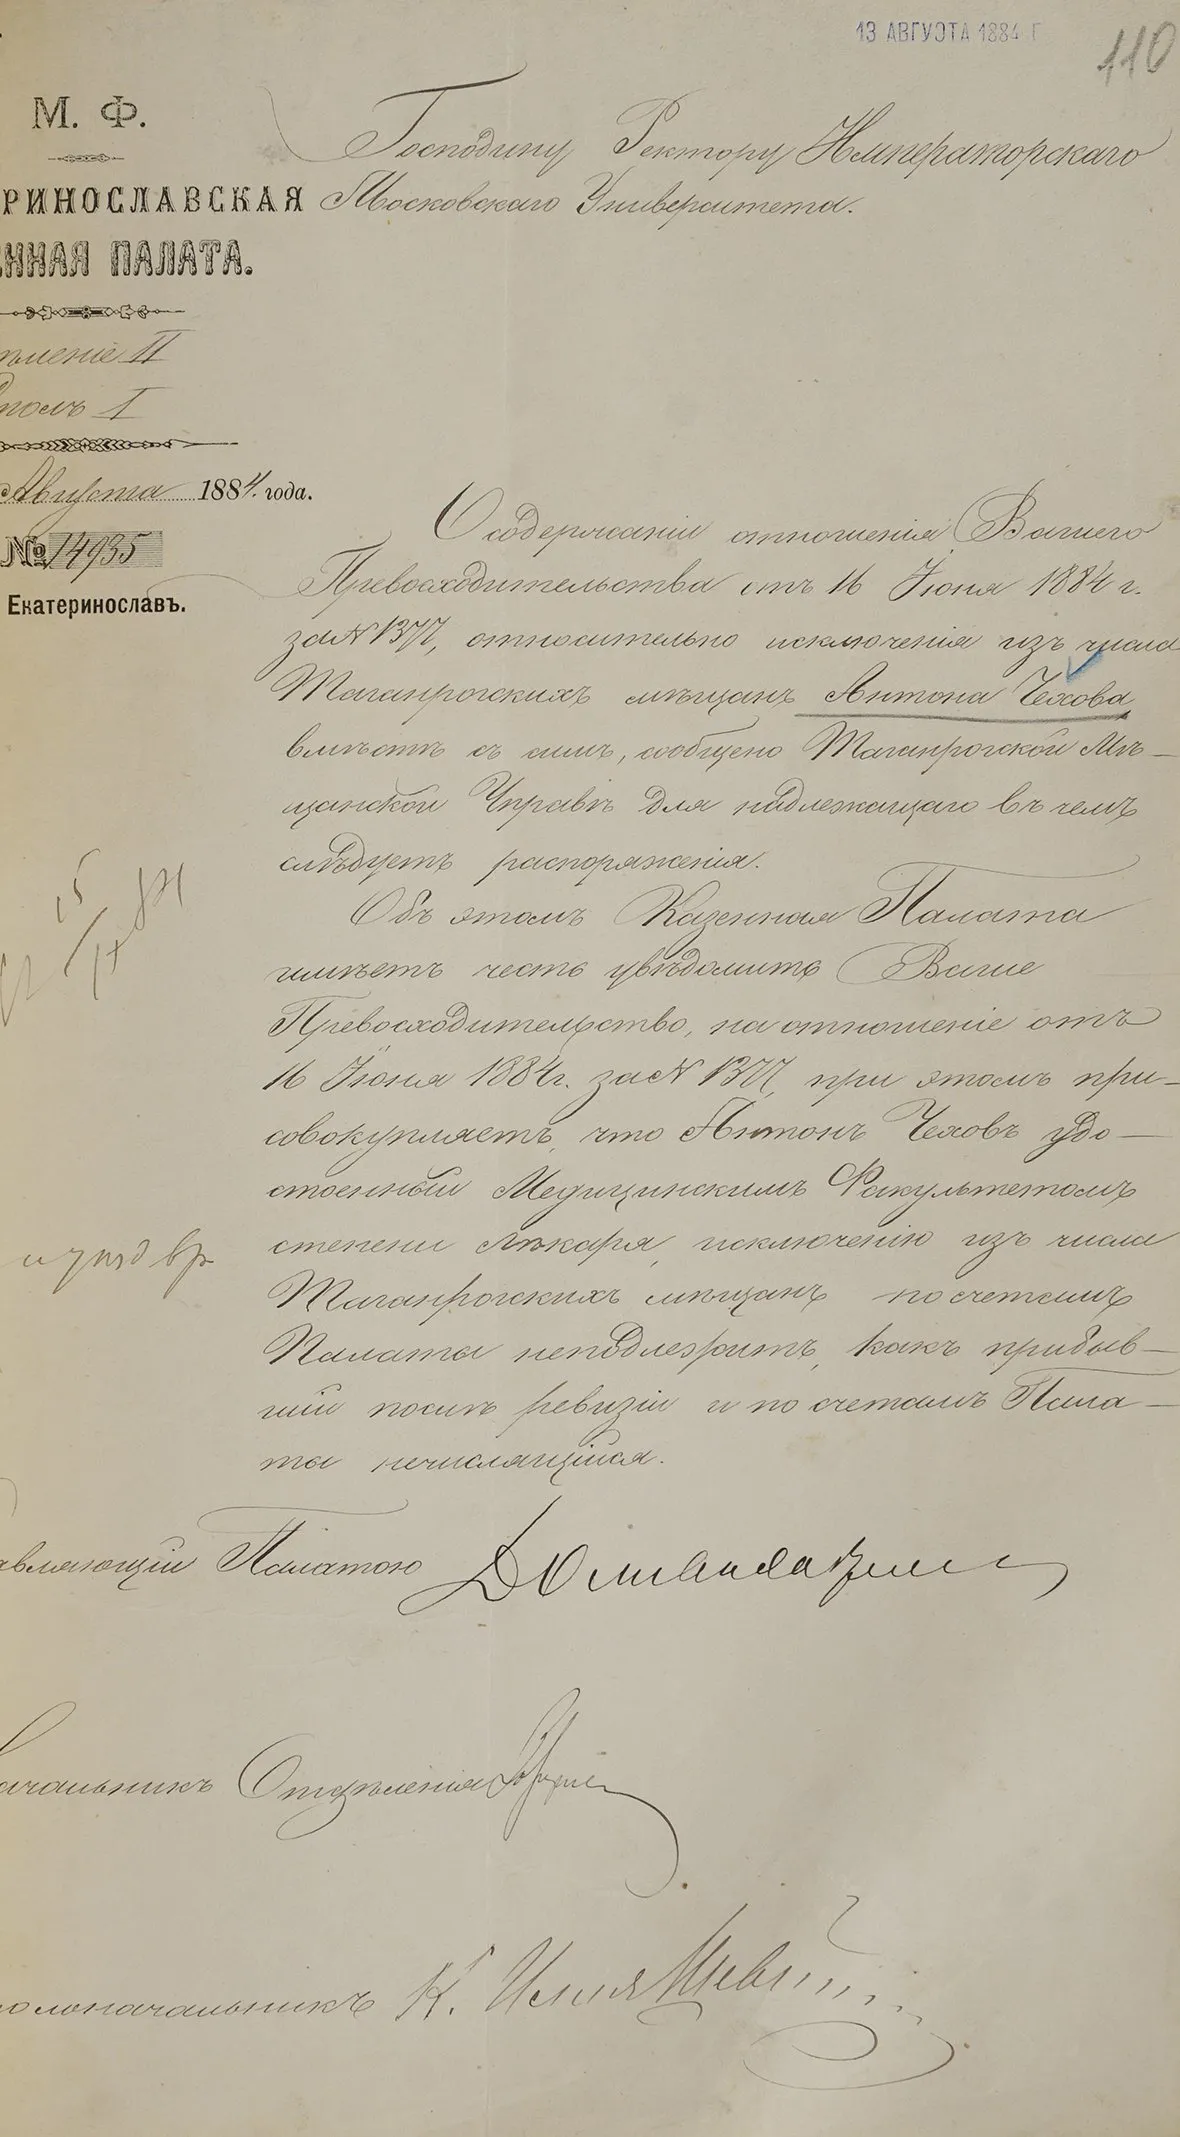 13 АВГУСТА 1884 Г
110
М. Ф.
РИНОСЛАВСКАЯ
ННАЯ ПАЛАТА.
тленіе II
столъ I
Августа 1884. года.
№ 14935
Екатеринославъ.
Господину Ректору Императорскаго
Московскаго Университета.
О содержаніи отношенія Вашего
Превосходительства отъ 16 Іюня 1884 г.
за № 1377, относительно исключенія изъ числа
Таганрогскихъ мѣщанъ Антона Чехова
вмѣстѣ съ симъ, сообщено Таганрогской Мѣ-
щанской Управѣ для надлежащаго въ чемъ
слѣдуетъ распоряженія.
Объ этомъ Казенная Палата
имѣетъ честь увѣдомить Ваше
Превосходительство, на отношеніе отъ
16 Іюня 1884 г. за № 1377, при этомъ при-
совокупляетъ, что Антонъ Чеховъ удо-
стоенный Медицинскимъ Факультетомъ
степени Лѣкаря, исключенію изъ числа
Таганрогскихъ мѣщанъ по счетамъ
Палаты неподлежитъ, какъ прибыв-
шій послѣ ревизіи и по счетамъ Пала-
ты нечислящійся.
авляющій Палатою
ачальникъ Отдѣленія
олоначальникъ К.